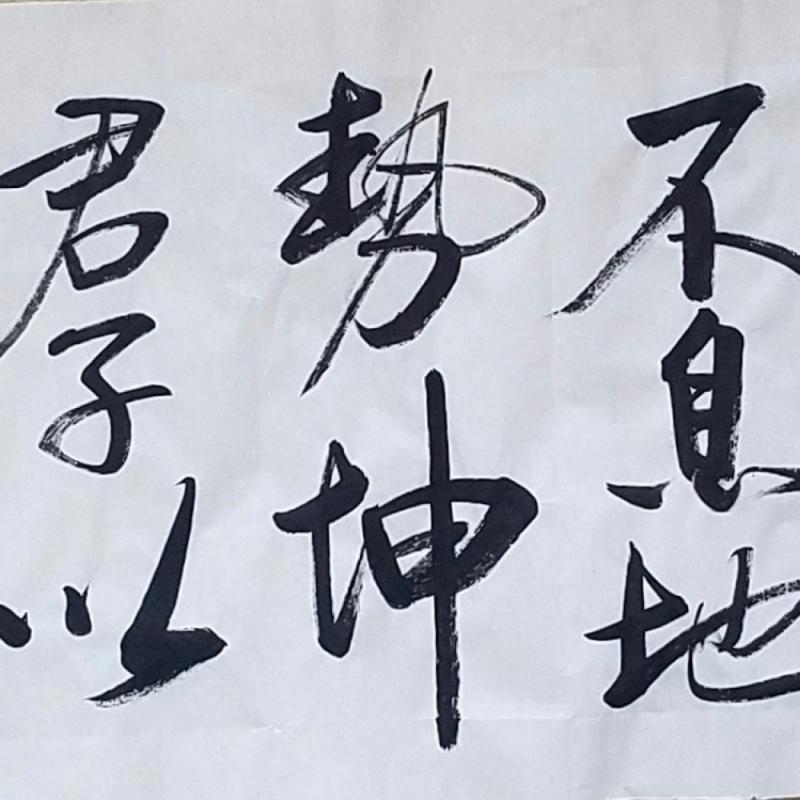 不息地
勢坤
君子以